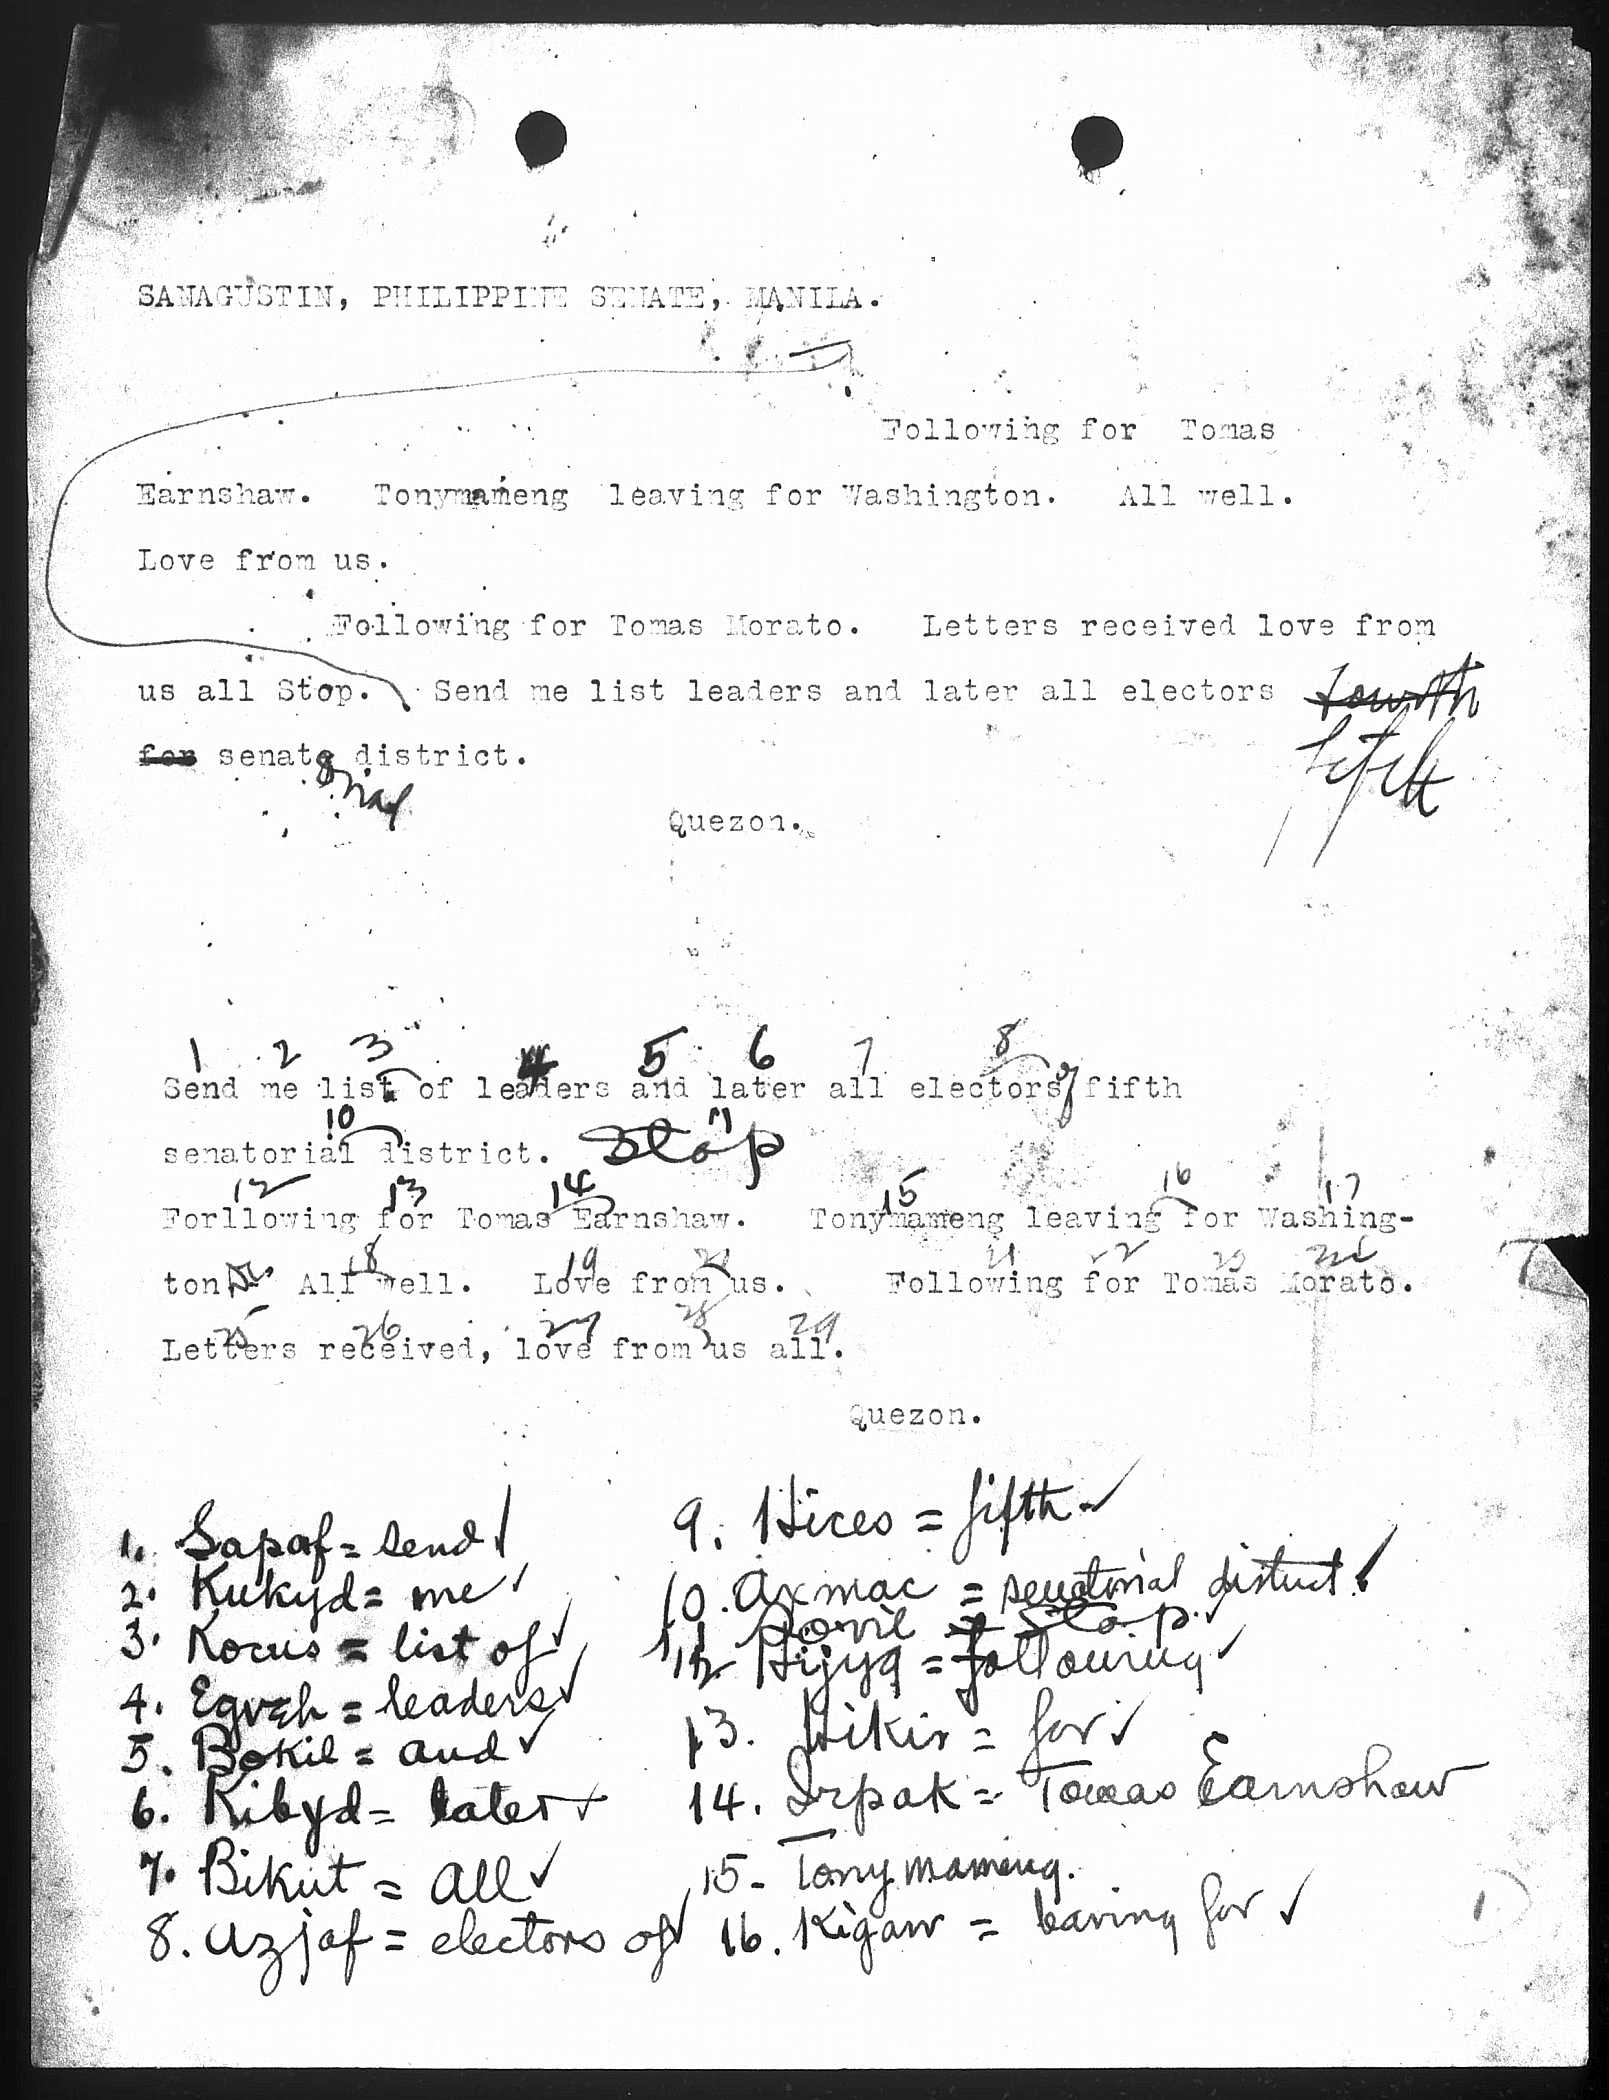 SANAGUSTIN, PHILIPPINE SENATE, MANILA.
Following for Tomas
Earnshaw. Tonymameng leaving for Washington. All well.
Love from us.
Following for Tomas Morato. Letters received love from
us all Stop. Send me list leaders and later all electors fourth
fifth
for senate district.
rial
Quezon.
1 2 3 4 5 6 7 8
Send me list of leaders and later all electors of fifth
10 11
senatorial district. Stop
12 13 14 15 16 17
Forllowing for Tomas Earnshaw. Tonymameng leaving for Washing-
18 19 20 21 22 23 24
ton. All well. Love from us. Following for Tomas Morato.
25 26 27 28 29
Letters received, love from us all.
Quezon.
1. Sapaf = send ✓
2. Kukyd = me ✓
3. Kocus = list of ✓
4. Egveh = leaders ✓
5. Bokil = and ✓
6. Kibyd = later ✓
7. Bikut = all ✓
8. Azjaf = electors of ✓
9. Hices = fifth ✓
10. Axmac = senatorial district ✓
11. Povil = Stop. ✓
12 Hijyq = following ✓
13. Hikir = for ✓
14. Irpak = Tomas Earnshaw
15- Tonymameng.
16. Kigaw = leaving for ✓
1